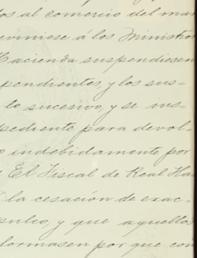 os al comercio del mar
viniese á los Ministro
Hacienda suspendiesen
pendientes y los sus-
lo sucesivo, y se ins-
pediente para devol-
indebidamente por
El Fiscal de Real Ha
la cesación de exac-
y que aquellos
formasen por que con